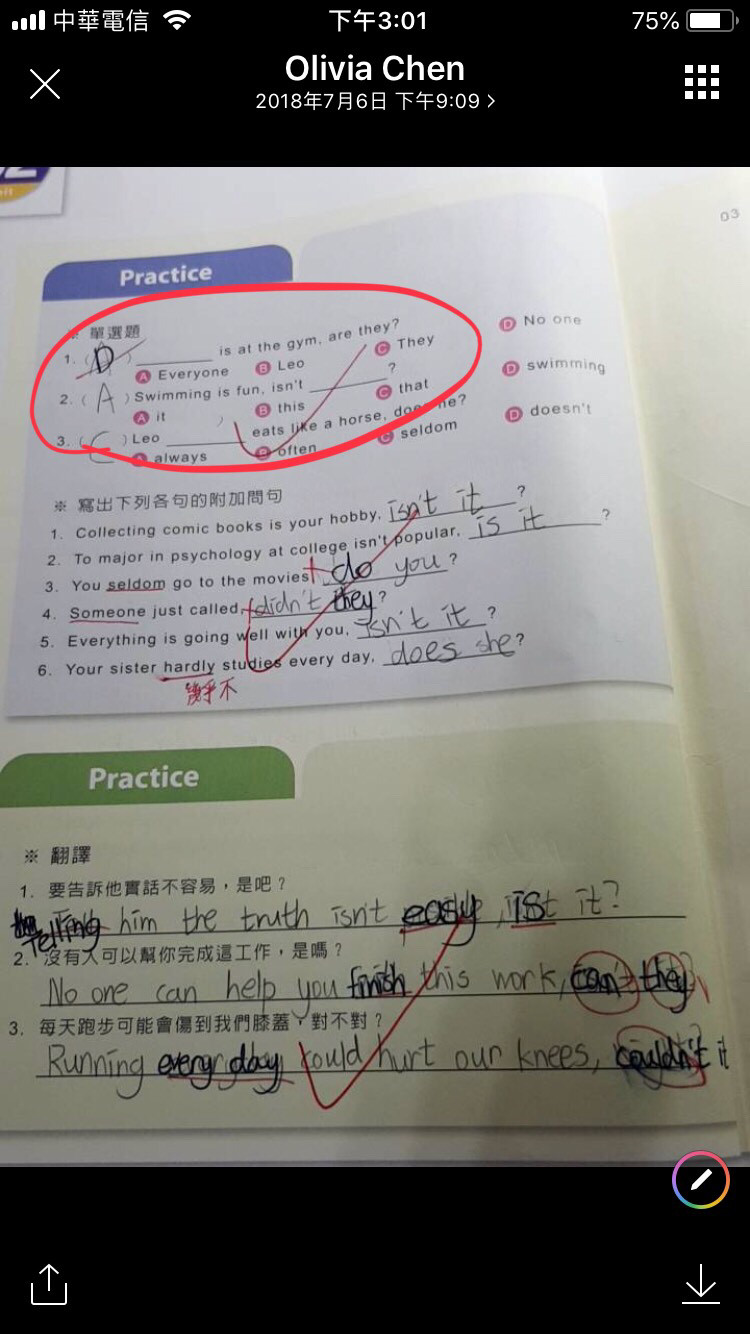 中華電信 下午3:01 75%
Olivia Chen
2018年7月6日 下午9:09 >
03
Practice
※ 單選題
1. ( D ) ________ is at the gym, are they?
A Everyone B Leo C They D No one
2. ( A ) Swimming is fun, isn't ________?
A it B this C that D swimming
3. ( C ) Leo ________ eats like a horse, does he?
A always B often C seldom D doesn't
※ 寫出下列各句的附加問句
1. Collecting comic books is your hobby, isn't it ?
2. To major in psychology at college isn't popular, is it ?
3. You seldom go to the movies, do you ?
4. Someone just called, didn't they?
5. Everything is going well with you, isn't it ?
6. Your sister hardly studies every day, does she?
幾乎不
Practice
※ 翻譯
1. 要告訴他實話不容易，是吧？
Telling him the truth isn't easy, is it?
2. 沒有人可以幫你完成這工作，是嗎？
No one can help you finish this work, can they
3. 每天跑步可能會傷到我們膝蓋，對不對？
Running every day could hurt our knees, couldn't it